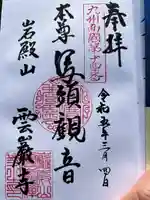 奉拝
九州西国第十四番
令和五年三月四日
本尊
馬頭観音
岩殿山
雲巌寺